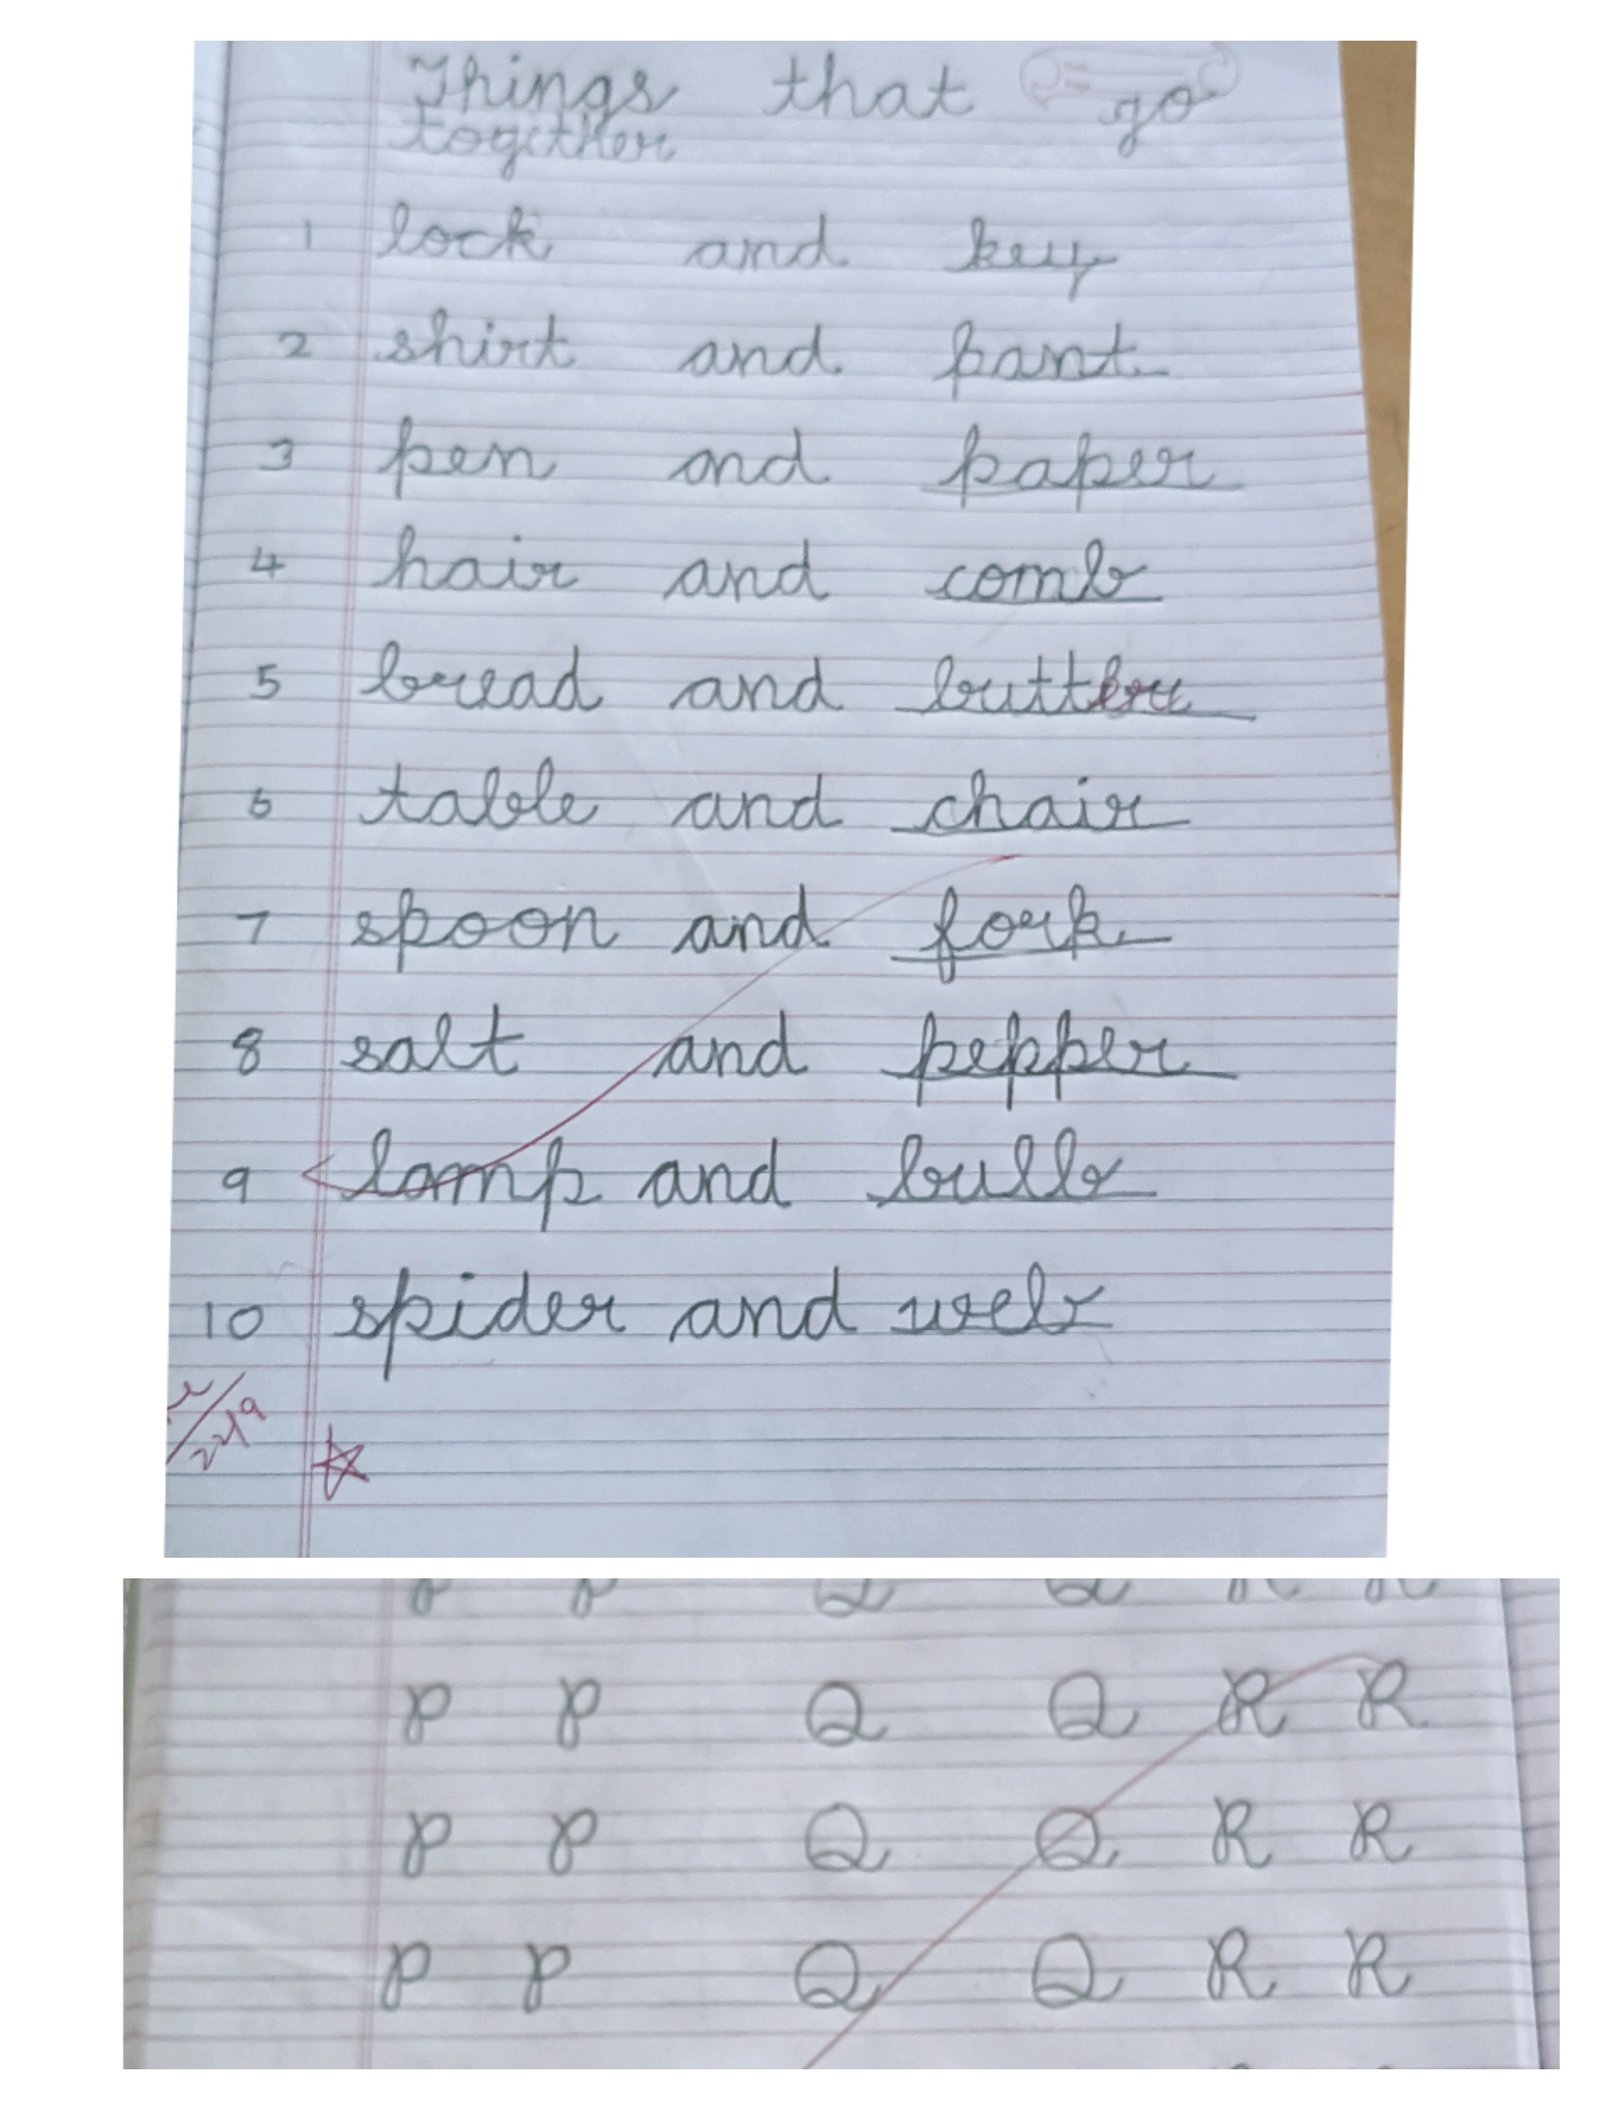 Things that go
together
1 lock and key
2 shirt and pant
3 pen and paper
4 hair and comb
5 bread and butter
6 table and chair
7 spoon and fork
8 salt and pepper
9 lamp and bulb
10 spider and web
22/9
P P Q Q R R
P P Q Q R R
P P Q Q R R
P P Q Q R R